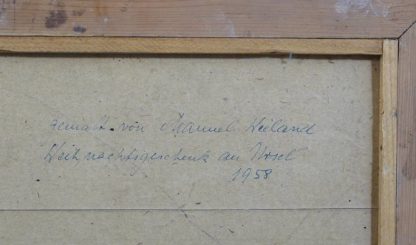 gemalt von Manuel Weiland
Weihnachtsgeschenk an Ursel
1958